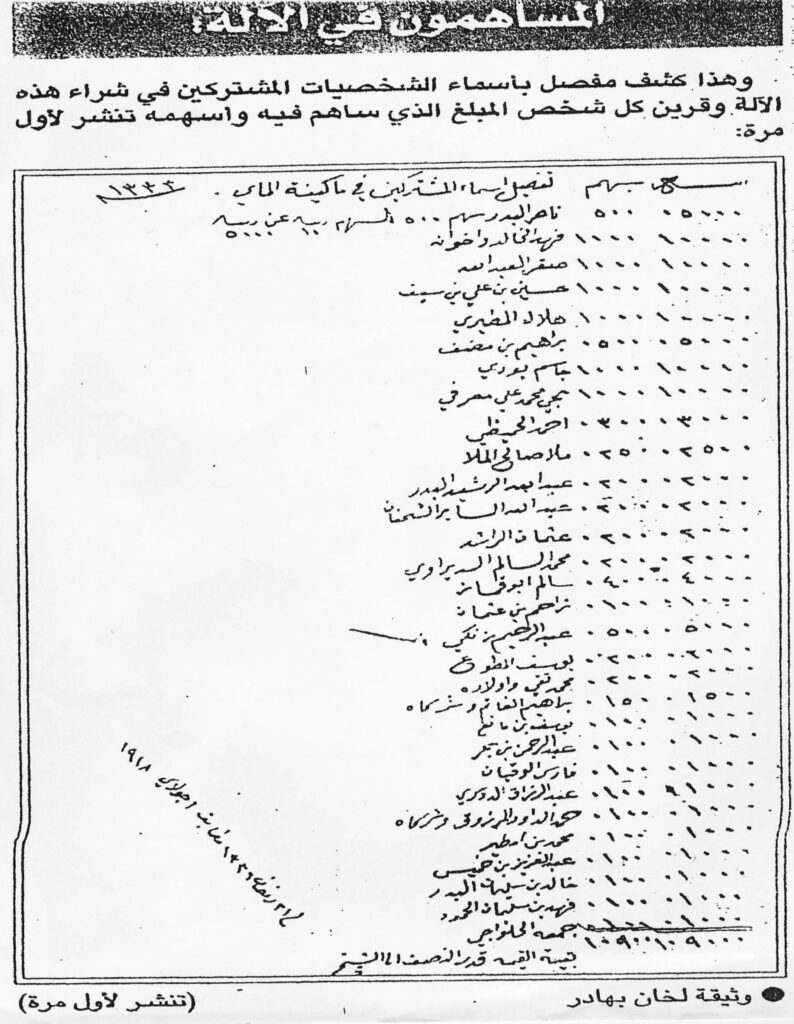 المساهمون في الآلة:
وهذا كشف مفصل بأسماء الشخصيات المشتركين في شراء هذه
الآلة وقرين كل شخص المبلغ الذي ساهم فيه وأسهمه تنشر لأول
مرة:
سهم تفصيل اسماء المشتركين في ماكينة الماي . ١٣٣٣
٠٥٠٠٠ ٥٠٠ ناصر البدر سهم ٥٠٠ السهم ربيه ١٠ عن ربيه ٥٠٠٠
١٠٠٠٠ ١٠٠٠ فهد الخالد واخوانه
١٠٠٠٠ ١٠٠٠ صقر العبد الله
١٠٠٠٠ ١٠٠٠ حسين بن علي بن سيف
١٠٠٠٠ ١٠٠٠ هلال المطيري
٠٥٠٠٠ ٠٥٠٠ براهيم بن مضف
١٠٠٠٠ ١٠٠٠ جاسم بودي
١٠٠٠٠ ١٠٠٠ محمد علي معرفي
٠٣٠٠٠ ٠٣٠٠ احمد
٠٢٥٠٠ ٠٢٥٠ ملا صالح الملا
٠٢٠٠٠ ٠٢٠٠ عبد الله الرشيد البدر
٠٢٠٠٠ ٠٢٠٠ عبد الله الساير الشحنان
٠٢٠٠٠ ٠٢٠٠ عثمان الراشد
٠٢٠٠٠ ٠٢٠٠ محمد السالم السديراوي
٠٤٠٠٠ ٠٤٠٠ سالم ابو قماز
٠١٠٠٠ ٠١٠٠ مزاحم بن عثمان
٠٥٠٠٠ ٠٥٠٠ عبد الرحيم بن
٠٢٠٠٠ ٠٢٠٠ يوسف المطوع
٠٢٠٠٠ ٠٢٠٠ محمد تقي واولاده
٠١٥٠٠ ٠١٥٠ براهيم الغانم وشركاه
٠١٠٠٠ ٠١٠٠ يوسف بن مانع
٠١٠٠٠ ٠١٠٠ عبد الرحمن بن بحر
٠١٠٠٠ ٠١٠٠ فارس الوقيان
٠١٠٠٠ ٠١٠٠ عبد الرزاق الدوسري
٠١٠٠٠ ٠١٠٠ حمد الداود المرزوق وشركاه
٠١٠٠٠ ٠١٠٠ محمد بن امطير
٠١٠٠٠ ٠١٠٠ عبد العزيز بن خميس
٠١٠٠٠ ٠١٠٠ خالد بن سليمان البدر
٠١٠٠٠ ٠١٠٠ فهد بن سليمان الحمود
٠١٠٠٠ ٠١٠٠ جمعه الحلواجي
١٠٩٠٠٠ ١٠٩٠٠
بقيية القيمه قدر النصف الى الشيخ
١٣٣٦ جولاي ١٩١٨
وثيقة لخان بهادر
(تنشر لأول مرة)